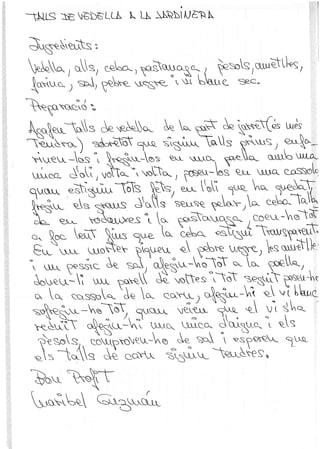 TALLS DE VEDELLA A LA JARDINERA
Ingredients:
Vedella, alls, ceba, pastanaga, pèsols, ametlles,
farina, sal, pebre negre i vi blanc sec.
Preparació:
Agafeu talls de vedella de la part de jarret (és més
tendra) sobretot que siguin talls prims, enfa-
rineu-los i fregiu-los en una paella amb una
mica d'oli, volta i volta, poseu-los en una cassola
quan estiguin tots fets, en l'oli que ha quedat
fregiu els grans d'alls sense pelar, la ceba talla-
da en rodanxes i la pastanaga, coeu-ho tot
a foc lent fins que la ceba estigui transparent.
En un morter piqueu el pebre negre, les ametlles
i un pessic de sal, afegiu-ho tot a la paella,
doneu-li un parell de voltes i tot seguit poseu-ho
a la cassola de la carn, afegiu-hi el vi blanc
sofregiu-ho tot, quan veieu que el vi s'ha
reduït afegiu-hi una mica d'aigua i els
pèsols, comproveu-ho de sal i espereu que
els talls de carn siguin tendres.
Bon Profit
Maribel Guzmán